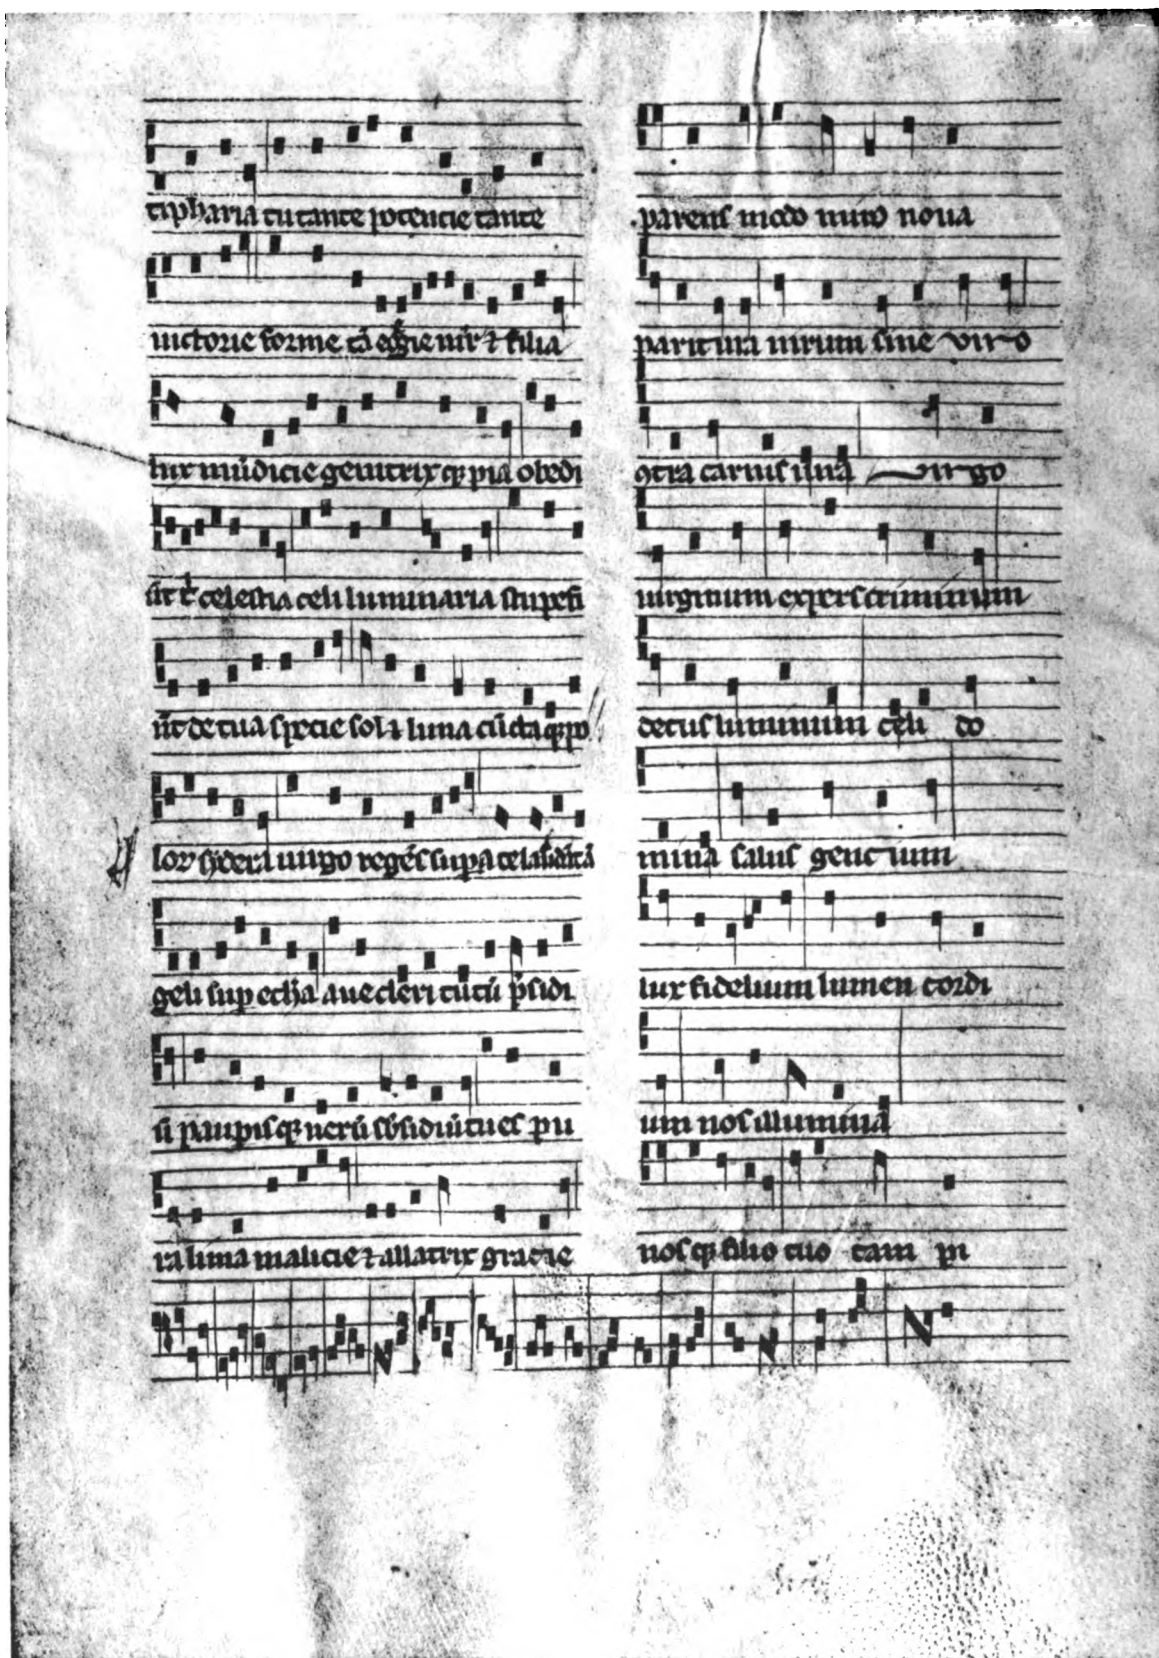 tipharia tu tante potencie tante
victorie forme tā egͥe mr̄ ⁊ filia
lux mūdicie genitrix qꝫ pia obedi
celestia celi luminaria stupefi
ūt de tua specie sol ⁊ luna cūctaqꝫ po
lorꝫ sydera virgo regēs supͣ
geli sup etha ave cleri tu tū pͥsidi
si paupis qꝫ verū sb̄sidiū tu es pu
ra lima malicie ⁊ allatrix gracie
parens modo miro nova
paritura virum sine viro
ꝯtra carnis iura virgo
virginum expers criminum
decus luminum celi do
mina salus gencium
lux fidelium lumen cordi
um nos illumina
nos qꝫ filio tuo tam pi